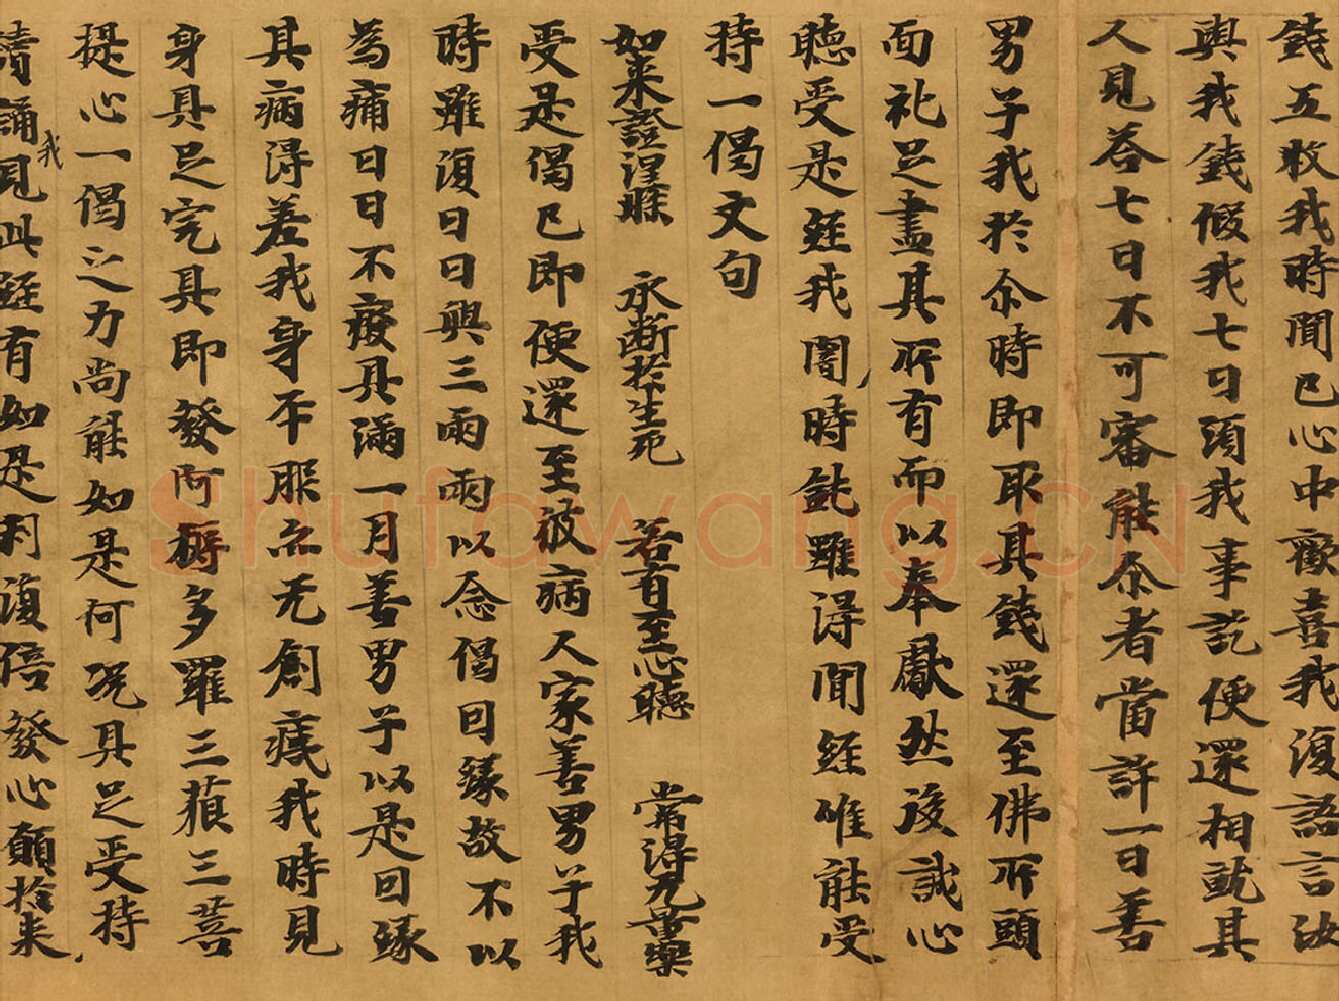 錢五枚我時聞已心中歡喜我復語言汝
與我錢假我七日須我事訖便還相就其
人見荅七日不可審能尒者當許一日善
男子我於尒時即取其錢還至佛所頭
面礼足盡其所有而以奉獻然後誠心
聽受是経我闇時鈍雖得聞経唯能受
持一偈文句
如来證涅槃 永斷於生死 若有至心聽 常得无量樂
受是偈已即便還至彼病人家善男子我
時雖復日日與三兩兩以念偈因縁故不以
為痛日日不癈具滿一月善男子以是因縁
其病得差我身平服亦无創痍我時見
身具足完具即發阿耨多羅三藐三菩
提心一偈之力尚能如是何况具足受持
讀誦我見此経有如是利復倍發心願於来
Shufawang.CN